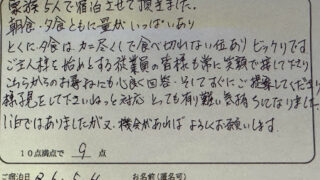 家族5人で宿泊させて頂きました。
朝食・夕食ともに量がいっぱいあり
とくに夕食はカニ尽くしで食べ切れない位ありビックリです
ご主人様を始めとする従業員の皆様も常に笑顔で接して下さり
こちらからのお尋ねにも心良く回答・そしてすぐにご提案してくださり
様子見をして下さい 対応 とっても有り難い気持ちになりました。
1泊ではありましたが又、機会があればよろしくお願いします。
10点満点で 9 点
ご宿泊日 お名前(匿名可)